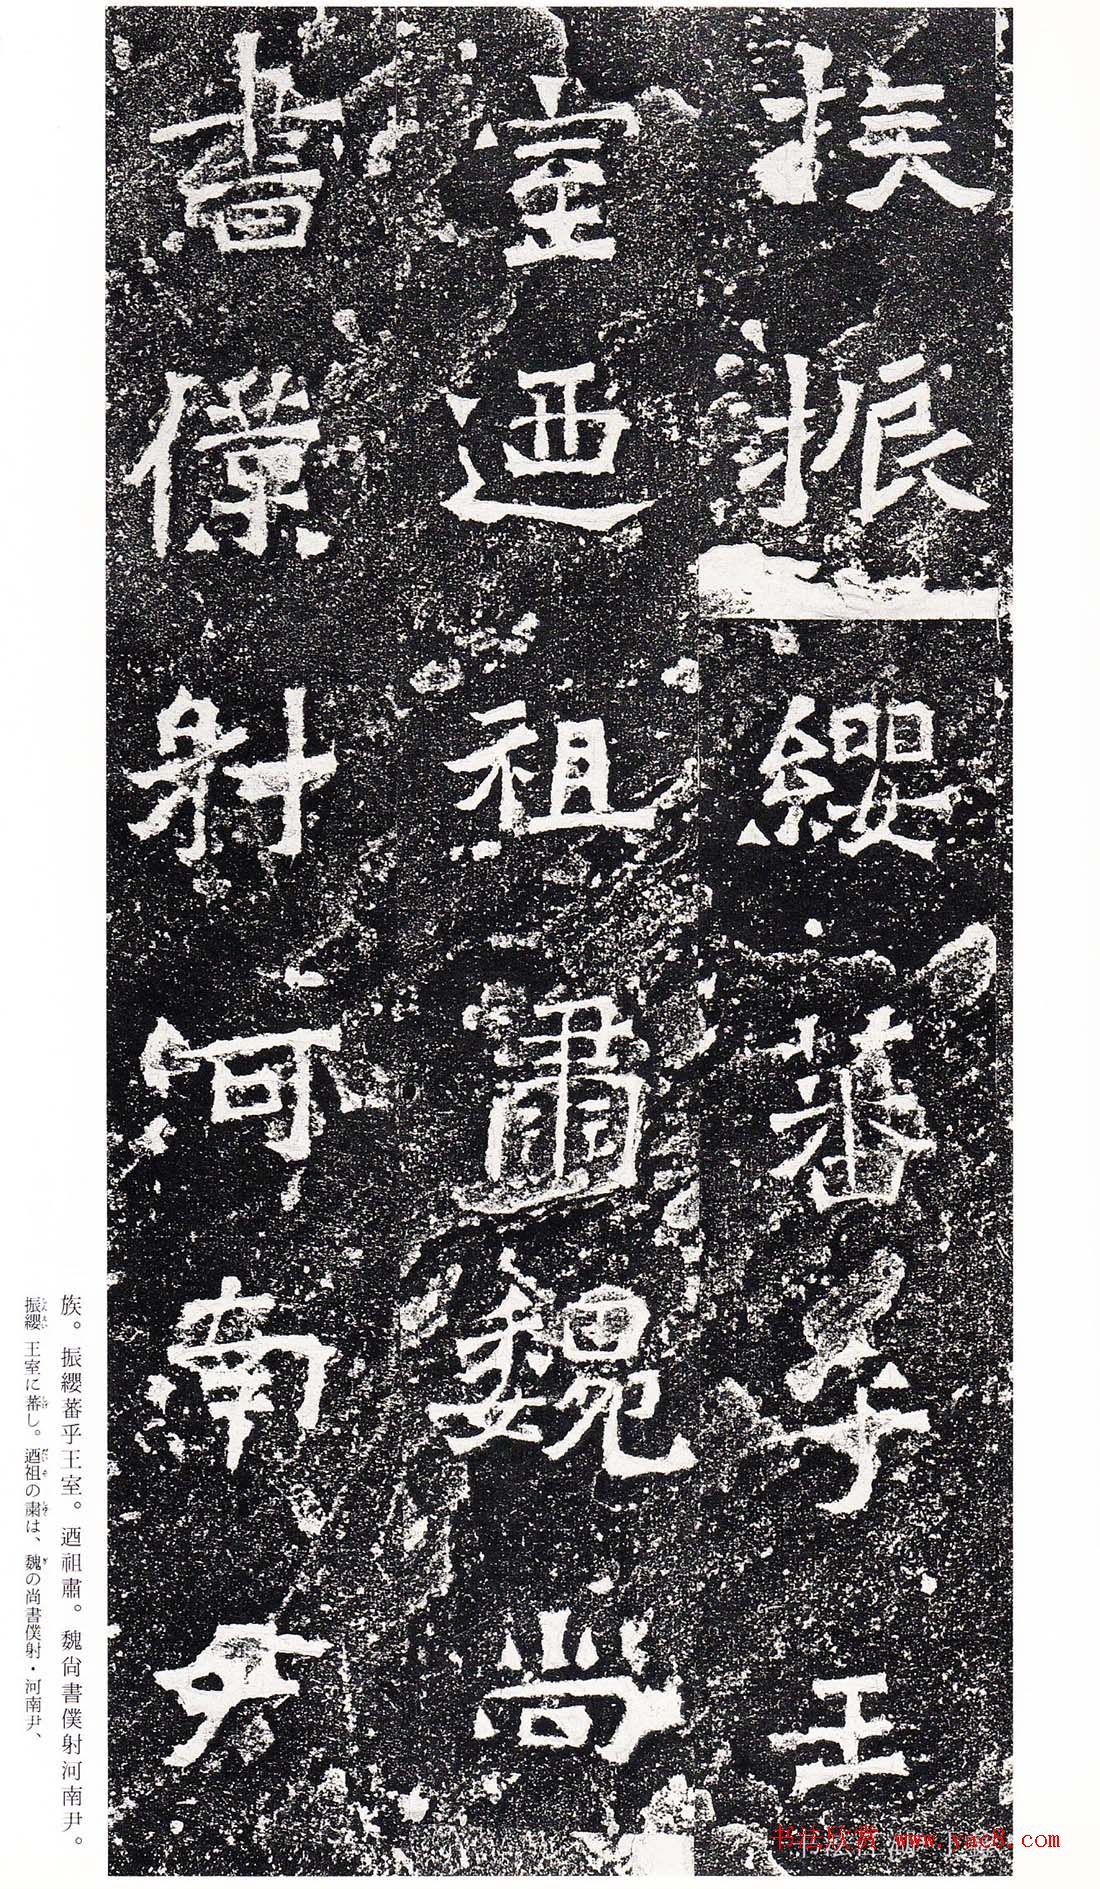 族振纓蕃乎王
室迺祖肅魏尚
書僕射河南尹
族。振纓蕃乎王室。迺祖肅。魏尙書僕射河南尹。
振纓 王室に蕃し。迺祖の粛は、魏の尚書僕射・河南尹、
书法欣赏 www.yac8.com